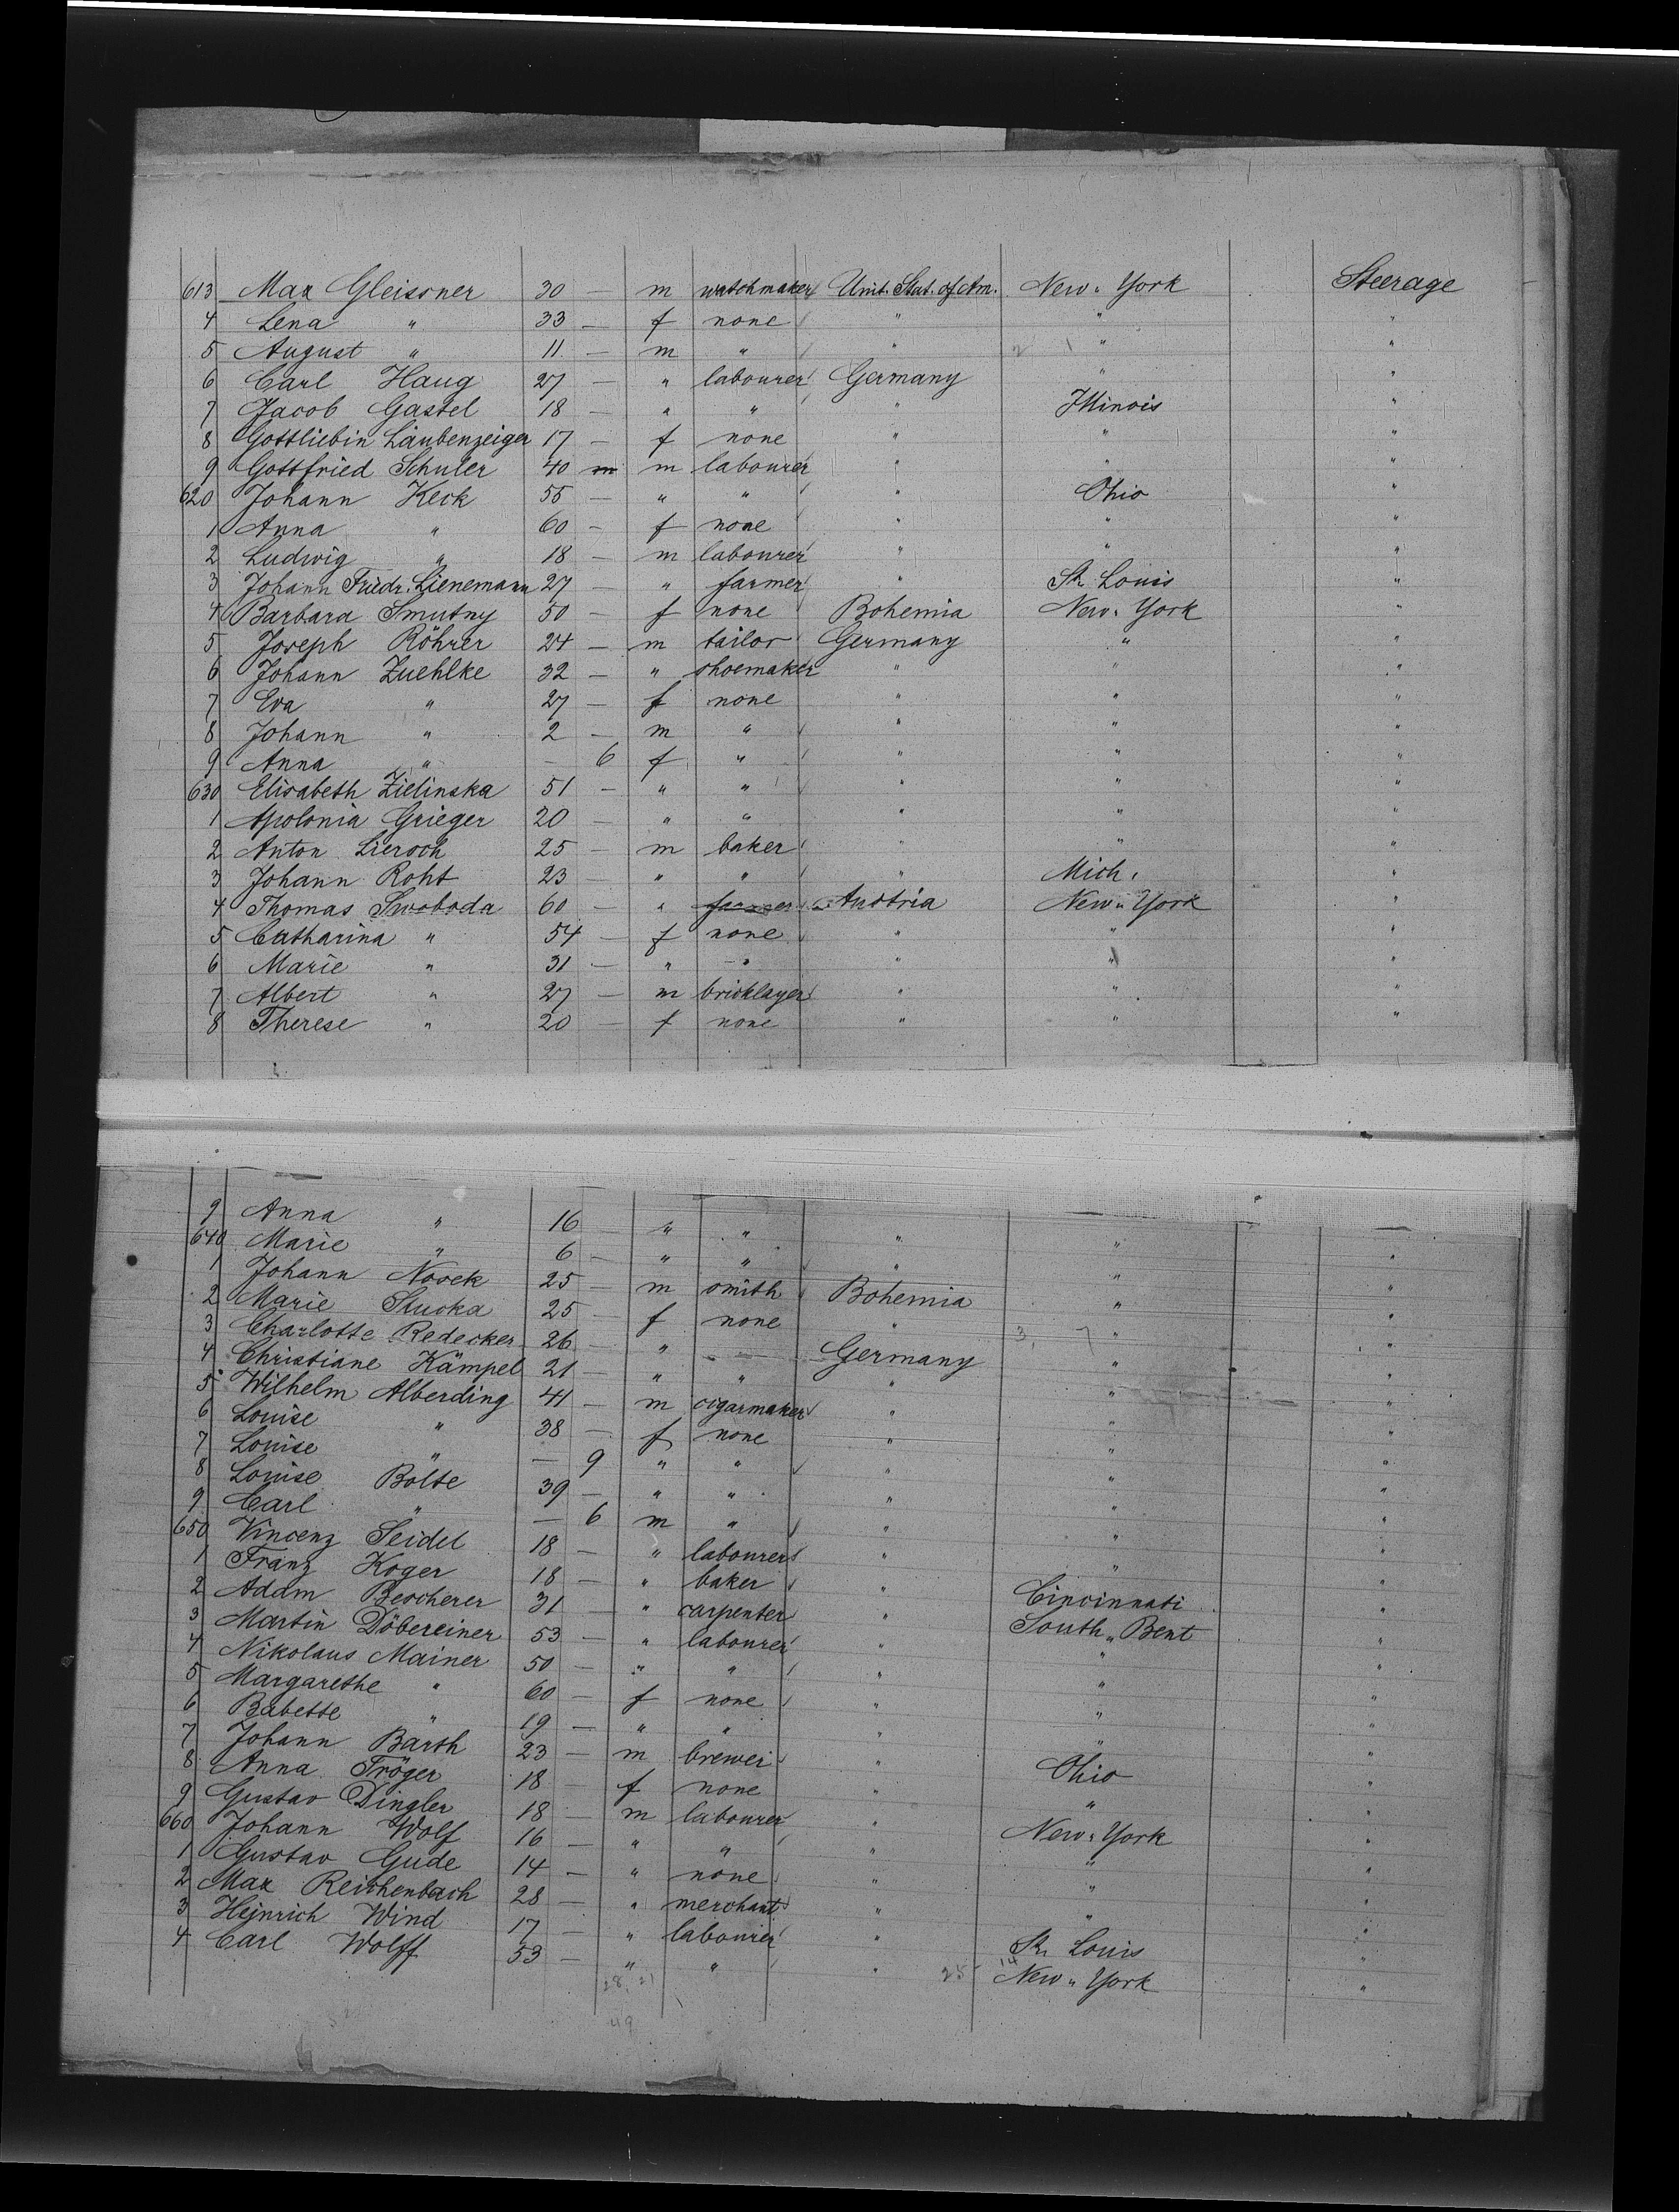 613 Max Gleissner 30 — m watchmaker Unit. Stat. of Am. New-York Steerage
4 Lena " 33 — f none " " "
5 August " 11 — m " " " "
6 Carl Haug 27 — " labourer Germany " "
7 Jacob Gastel 18 — " " " Illinois "
8 Gottliebin Läubenzeiger 17 — f none " " "
9 Gottfried Schuler 40 m m labourer " " "
620 Johann Keck 55 — " " " Ohio "
1 Anna " 60 — f none " " "
2 Ludwig " 18 — m labourer " " "
3 Johann Friedr. Lienemann 27 — " farmer " St. Louis "
4 Barbara Smutny 50 — f none Bohemia New-York "
5 Joseph Röhrer 24 — m tailor Germany " "
6 Johann Zuehlke 32 — " shoemaker " " "
7 Eva " 27 — f none " " "
8 Johann " 2 — m " " " "
9 Anna " — 6 f " " " "
630 Elisabeth Zielinska 51 — " " " " "
1 Apolonia Grieger 20 — " " " " "
2 Anton Lieroch 25 — m baker " " "
3 Johann Roht 23 — " " " Mich. "
4 Thomas Swoboda 60 — " farmer Austria New-York "
5 Catharina " 54 — f none " " "
6 Marie " 31 — " " " " "
7 Albert " 27 — m bricklayer " " "
8 Therese " 20 — f none " " "
9 Anna " 16 — " " " " "
640 Marie " 6 — " " " " "
1 Johann Nosek 25 — m smith Bohemia " "
2 Marie Stucka 25 — f none " " "
3 Charlotte Redecker 26 — " — Germany " "
4 Christiane Kämpel 21 — " " " " "
5 Wilhelm Alberding 41 — m cigarmaker " " "
6 Louise " 38 — f none " " "
7 Louise " — 9 " " " " "
8 Louise Bolte 39 — " " " " "
9 Carl " — 6 m " " " "
650 Vincenz Seidel 18 — " labourer " " "
1 Franz Koger 18 — " baker " " "
2 Adam Bescherer 31 — " carpenter " Cincinnati "
3 Martin Döbereiner 53 — " labourer " South-Bent "
4 Nikolaus Mainer 50 — " " " " "
5 Margarethe " 60 — f none " " "
6 Babette " 19 — " " " " "
7 Johann Barth 23 — m brewer " " "
8 Anna Tröger 18 — f none " Ohio "
9 Gustav Dingler 18 — m labourer " " "
660 Johann Wolf 16 — " " " New-York "
1 Gustav Gude 14 — " none " " "
2 Max Reichenbach 28 — " merchant " " "
3 Heinrich Wind 17 — " labourer " St. Louis "
4 Carl Wolff 53 — " " " New-York "
28 21
49